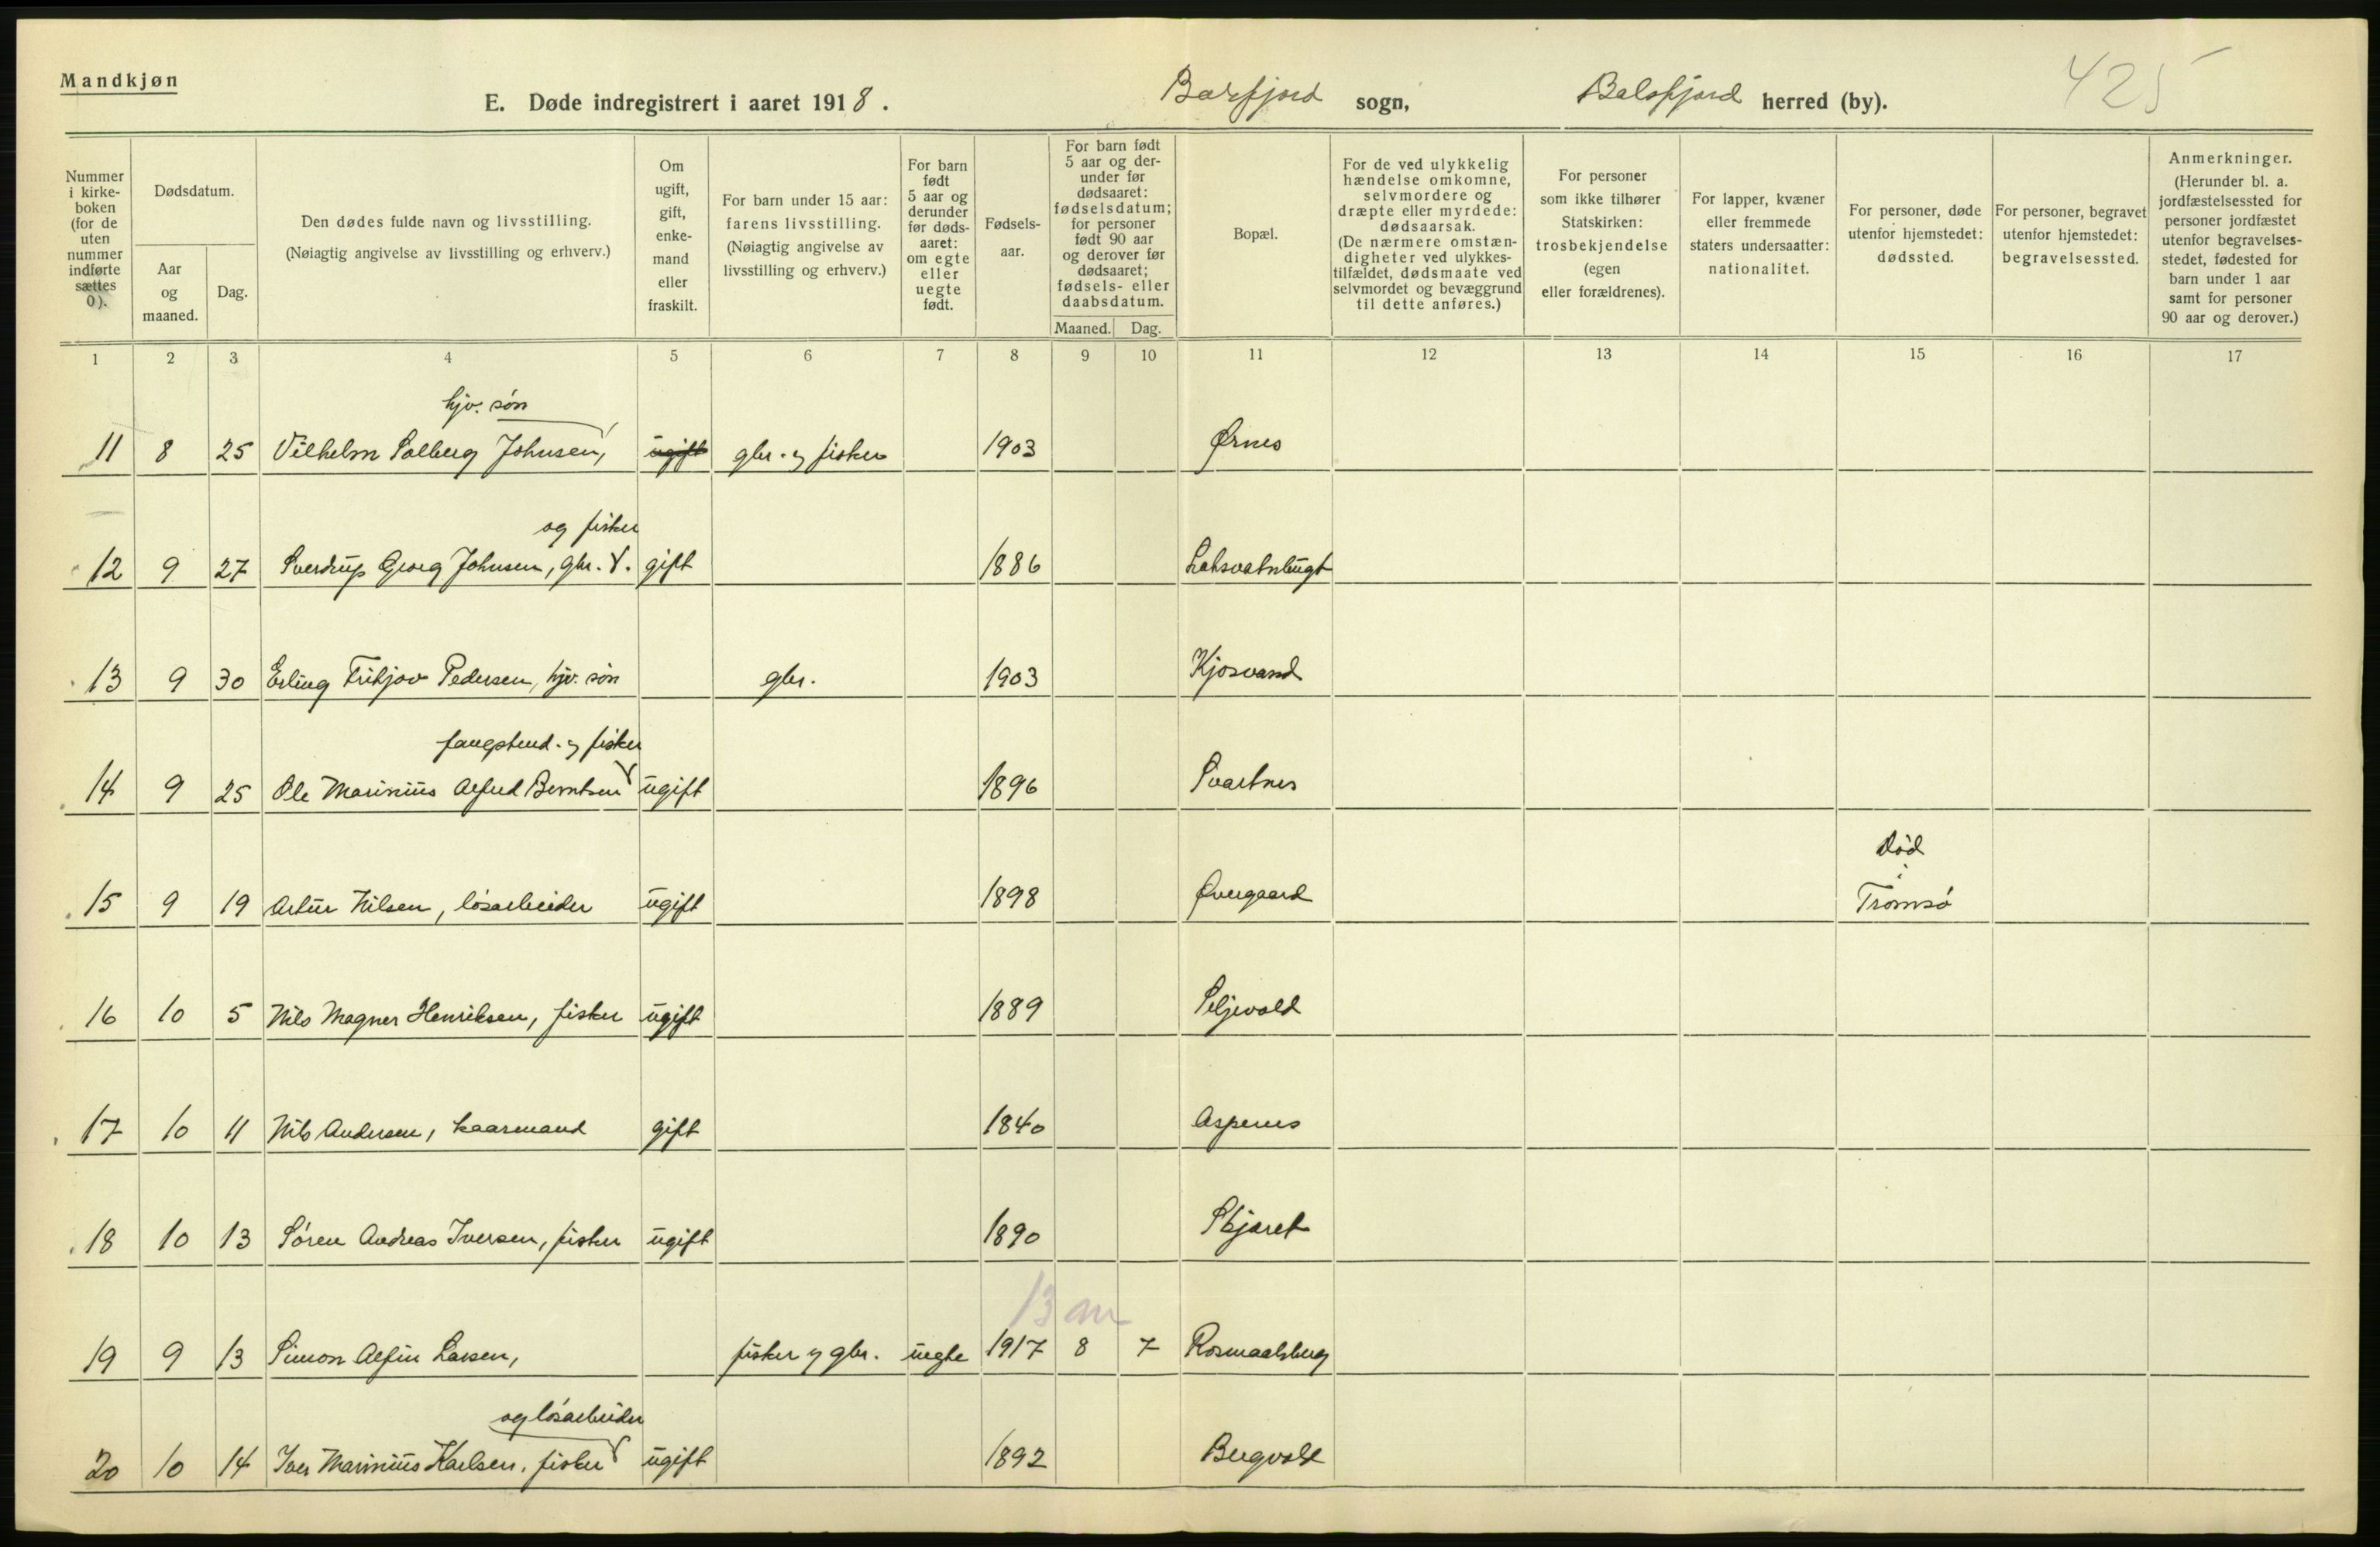 Mandkjøn
E. Døde indregistrert i aaret 1918. Balsfjord sogn, Balsfjord herred (by). 425
Nummer i kirke- boken (for de uten nummer indførte sættes 0).
Dødsdatum.
Aar og maaned.
Dag.
Den dødes fulde navn og livsstilling.
(Nøiagtig angivelse av livsstilling og erhverv.)
Om ugift, gift, enke- mand eller fraskilt.
For barn under 15 aar: farens livsstilling. (Nøiagtig angivelse av livsstilling og erhverv.)
For barn født 5 aar og derunder før døds- aaret: om egte eller uegte født.
Fødsels- aar.
For barn født 5 aar og der- under før dødsaaret: fødselsdatum; for personer født 90 aar og derover før dødsaaret; fødsels- eller daabsdatum.
Maaned. Dag.
Bopæl.
For de ved ulykkelig hændelse omkomne, selvmordere og dræpte eller myrdede: dødsaarsak. (De nærmere omstæn- digheter ved ulykkes- tilfældet, dødsmaate ved selvmordet og bevæggrund til dette anføres.)
For personer som ikke tilhører Statskirken: trosbekjendelse (egen eller forældrenes).
For lapper, kvæner eller fremmede staters undersaatter: nationalitet.
For personer, døde utenfor hjemstedet: dødssted.
For personer, begravet utenfor hjemstedet: begravelsessted.
Anmerkninger. (Herunder bl. a. jordfæstelsessted for personer jordfæstet utenfor begravelses- stedet, fødested for barn under 1 aar samt for personer 90 aar og derover.)
1 2 3 4 5 6 7 8 9 10 11 12 13 14 15 16 17
hjv. søn
11 8 25 Vilhelm Solberg Johnsen, ugift gbr. og fisker 1903 Ørnes
og fisker
12 9 27 Sverdrup Georg Johnsen, gbr. gift 1886 Laksvatnbugt
13 9 30 Erling Fritjov Pedersen, hjv. søn gbr. 1903 Kjosvand
fangstmd. og fisker
14 9 25 Ole Marinius Alfred Berntsen ugift 1896 Svartnes
Død
i
15 9 19 Artur Nilsen, løsarbeider ugift 1898 Øvergaard Tromsø
16 10 5 Nils Magner Henriksen, fisker ugift 1889 Seljevold
17 10 11 Nils Andersen, kaarmand gift 1840 Aspenes
18 10 13 Søren Andreas Iversen, fisker ugift 1890 Skjæret
13
19 9 13 Simon Alfin Larsen, fisker og gbr. uegte 1917 8 7 Rosmaalsberg
og løsarbeider
20 10 14 Iver Marinius Karlsen, fisker ugift 1892 Bergvold